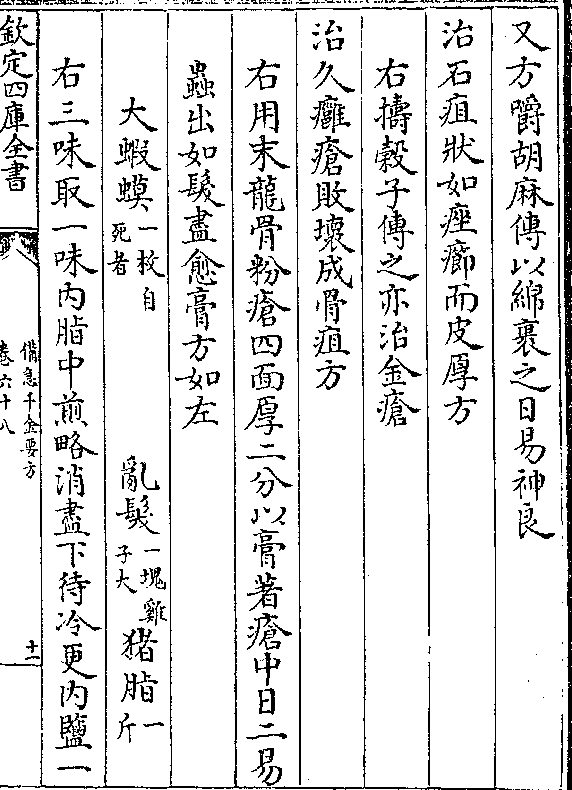 又方嚼胡麻傅以綿裹之日易神良
治石疽狀如痤癤而皮厚方
右擣穀子傅之亦治金瘡
治久癰瘡敗壞成骨疽方
右用末龍骨粉瘡四面厚二分以膏著瘡中日二易
蟲出如髮盡愈膏方如左
大蝦蟆一枚自死者 亂髮一塊雞子大 猪脂一斤
右三味取一味内脂中煎略消盡下待冷更内鹽一
欽定四庫全書
備急千金要方
卷六十八
十一